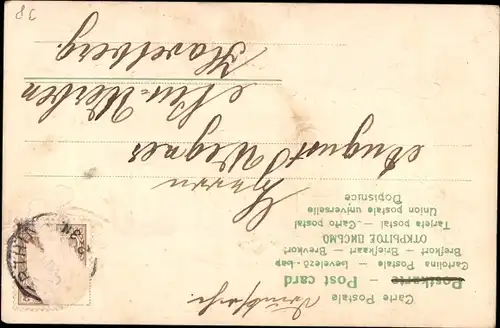 Carte Postale
Postkarte — Post card
Cartolina Postale — Levelező-Lap
Brefkort — Briefkaart — Brevkort
ОТКРЫТОЕ ПИСЬМО
Tarjeta postal — Carto postal
Union postale universelle
Dopisnice
Drucksache.
Herrn
August Wegner
Neu-Werben
Havelberg.
38